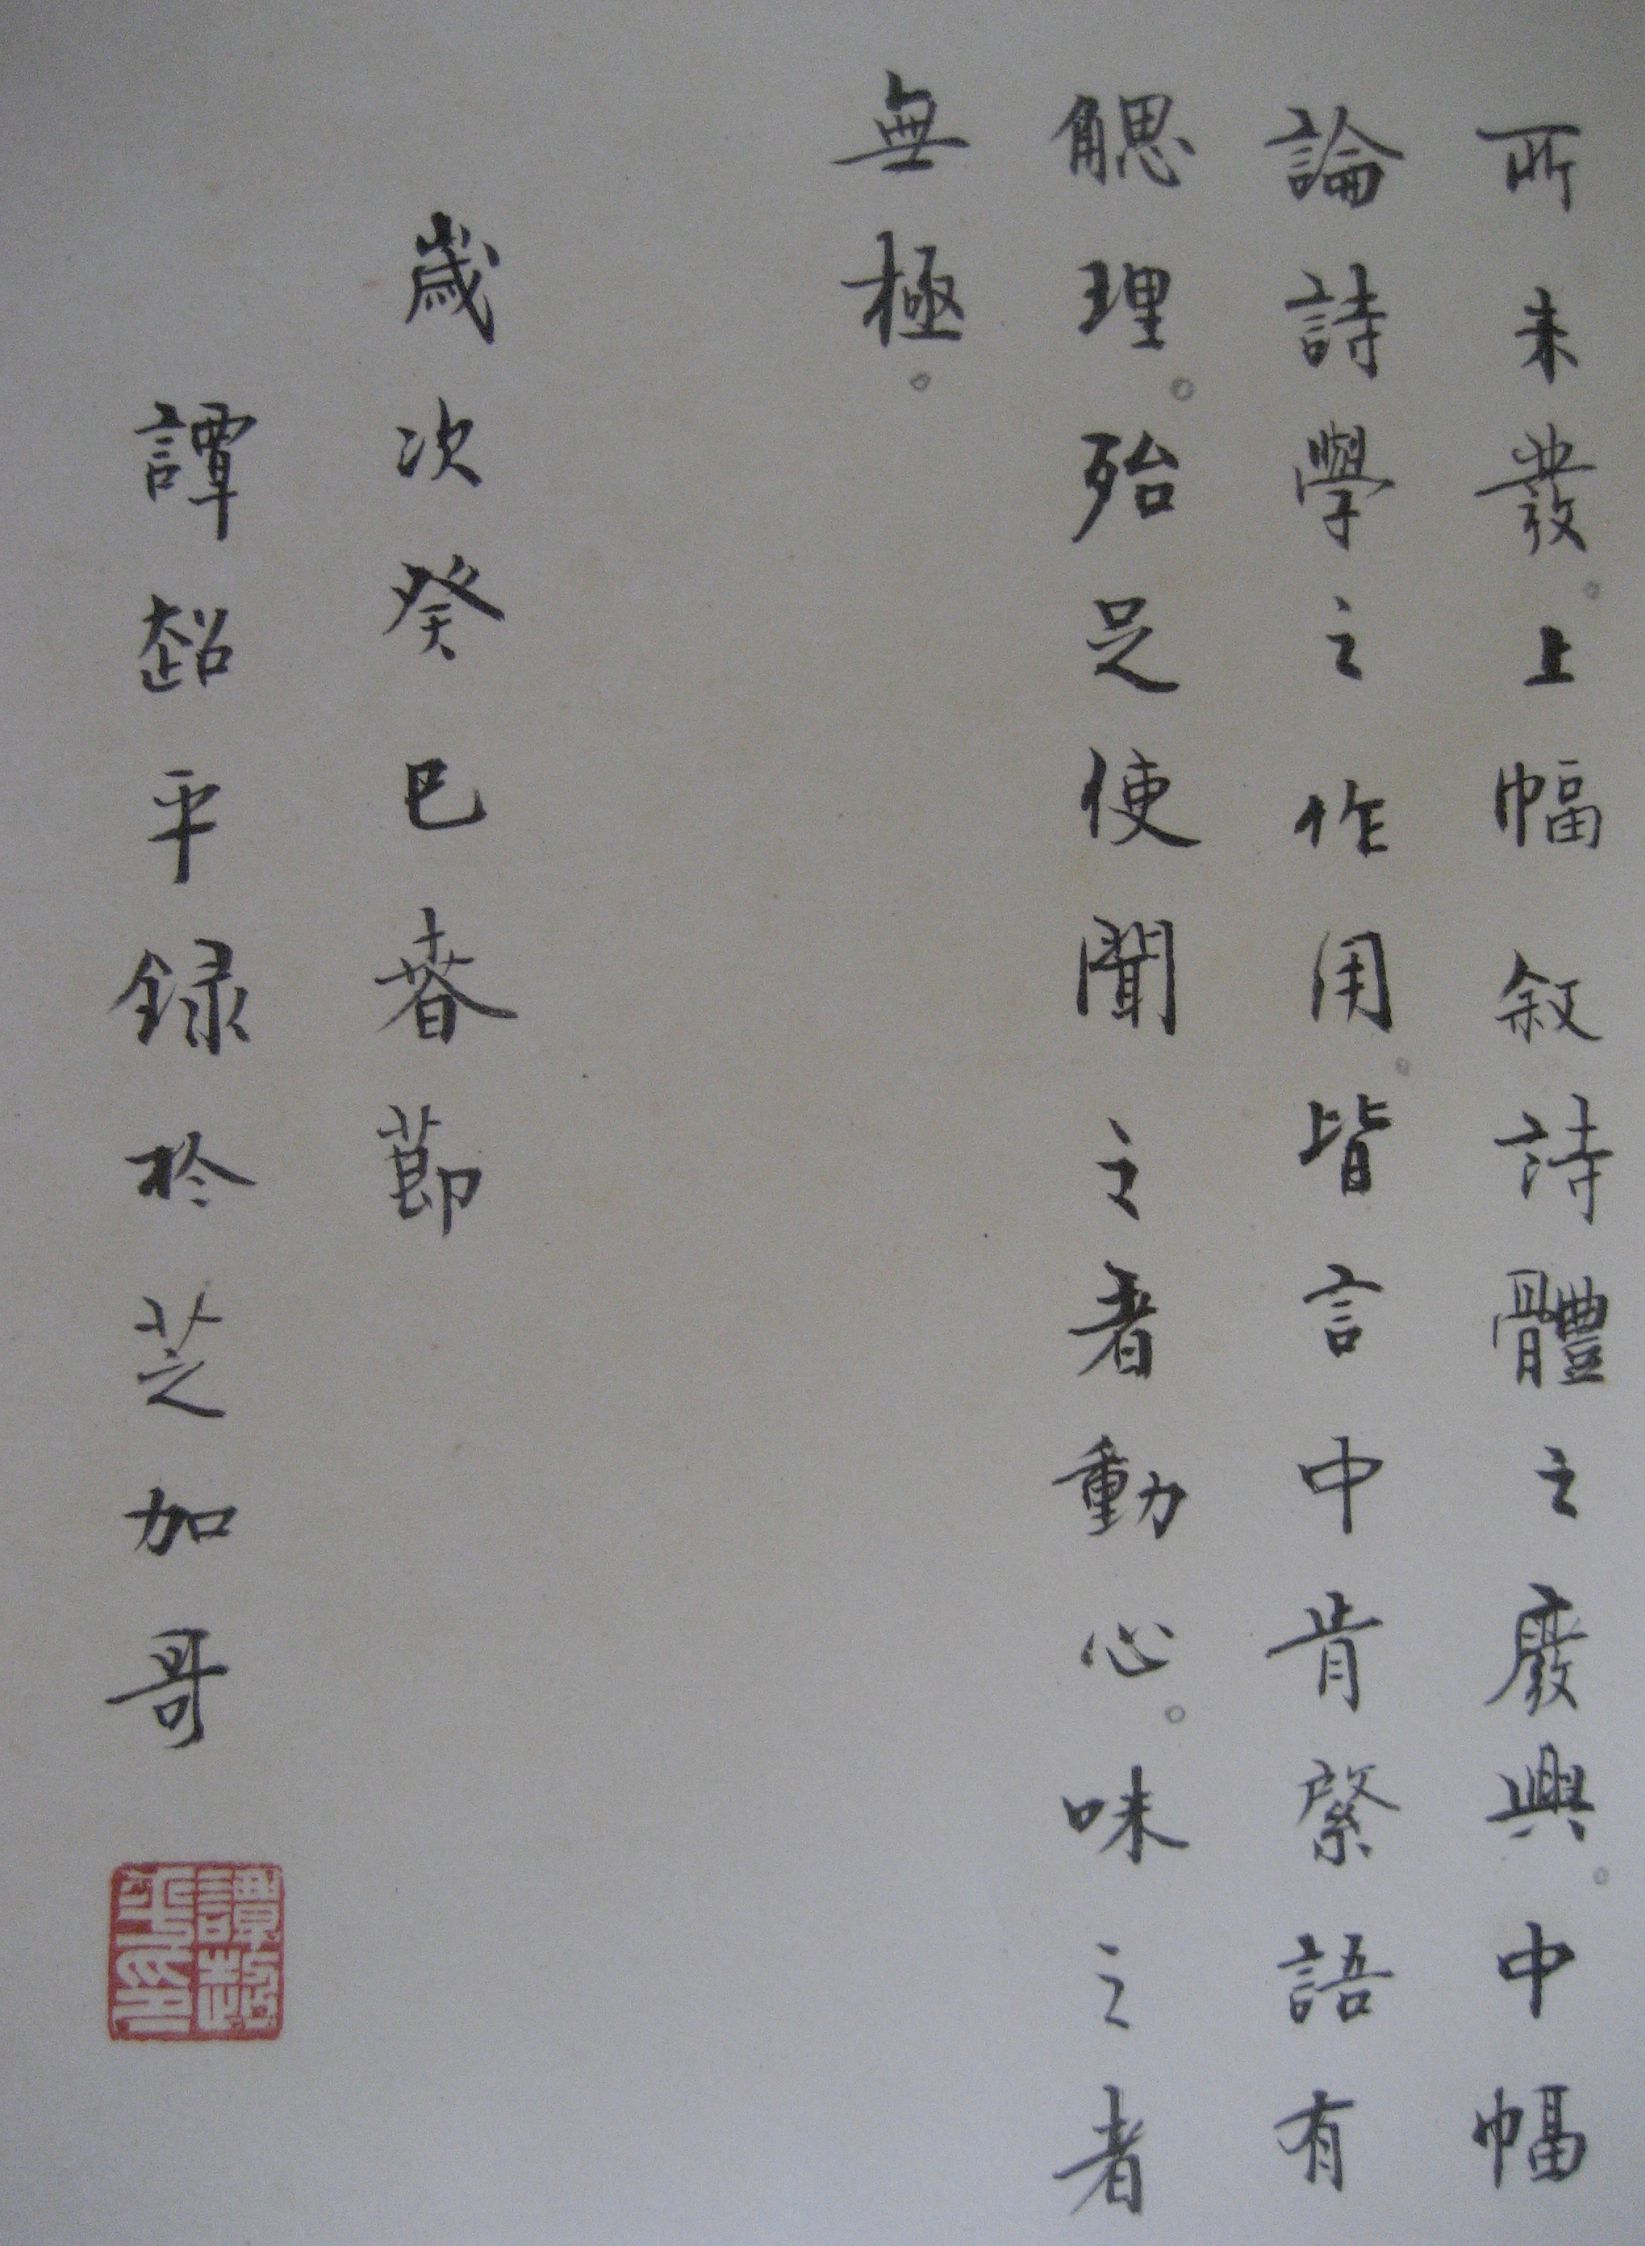 所未發。上幅敘詩體之廢興。中幅
論詩學之作用。皆言中肯綮語有
䚡理。殆足使聞之者動心。味之者
無極。
歲次癸巳春節
譚超平録於芝加哥
譚超
平印